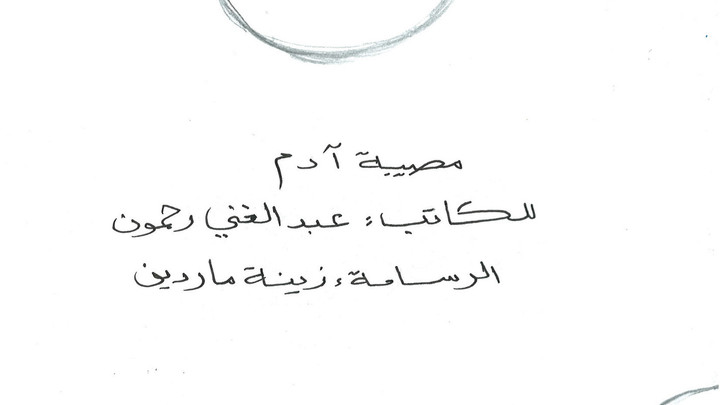 مصيبة آدم
للكاتب: عبد الغني رحمون
الرسامة: زينة ماردين